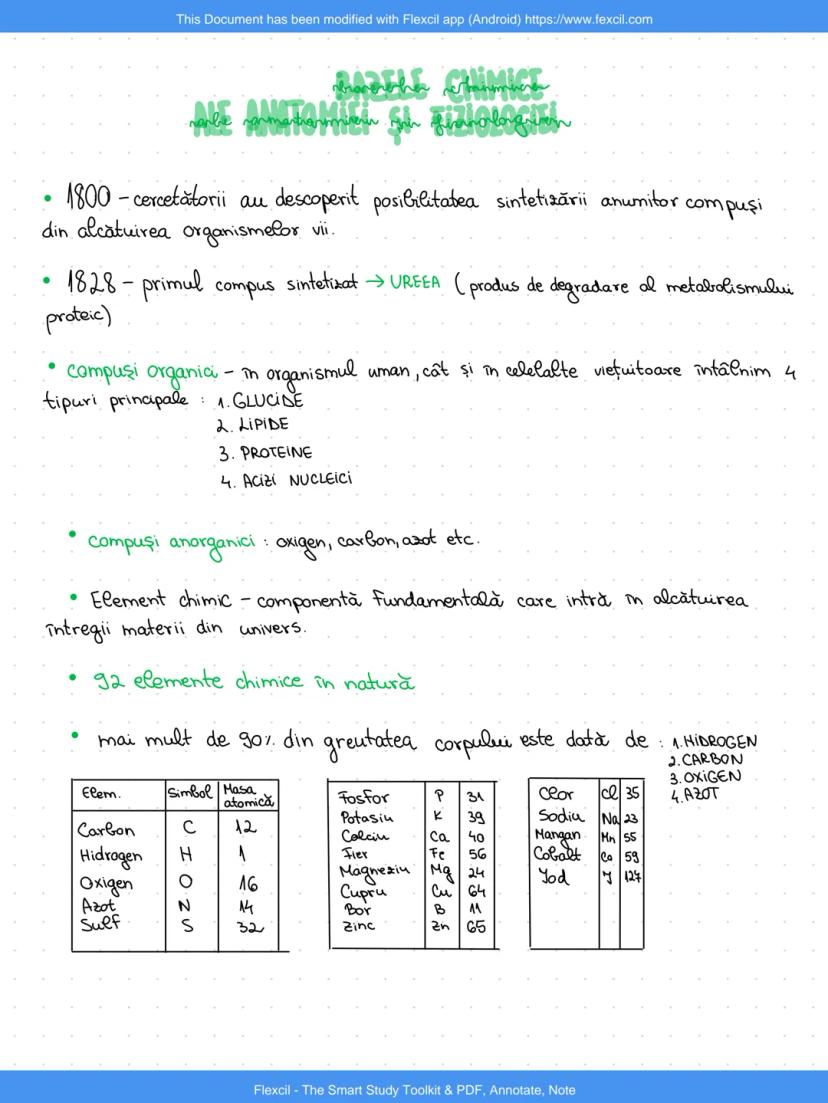 This Document has been modified with Flexcil app (Android) https://www.fexcil.com
BAZELE CHIMICE
ALE ANATOMIEI ȘI FIZIOLOGIEI
• 1800 – cercetătorii au descoperit posibilitatea sintetizării anumitor compuși
din alcătuirea organismelor vii.
• 1828 – primul compus sintetizat → UREEA (produs de degradare al metabolismului
proteic)
• compuși organici – în organismul uman, cât și în celelalte viețuitoare întâlnim 4
tipuri principale : 1. GLUCIDE
2. LIPIDE
3. PROTEINE
4. ACIZI NUCLEICI
• compuși anorganici : oxigen, carbon, azot etc.
• Element chimic – componentă fundamentală care intră în alcătuirea
întregii materii din univers.
• 92 elemente chimice în natură
• mai mult de 90% din greutatea corpului este dată de : 1. HIDROGEN
2. CARBON
3. OXIGEN
4. AZOT
Elem. Simbol Masa atomică
Carbon C 12
Hidrogen H 1
Oxigen O 16
Azot N 14
Sulf S 32
Fosfor P 31
Potasiu K 39
Calciu Ca 40
Fier Fe 56
Magneziu Mg 24
Cupru Cu 64
Bor B 11
Zinc Zn 65
Clor Cl 35
Sodiu Na 23
Mangan Mn 55
Cobalt Co 59
Iod J 127
Flexcil - The Smart Study Toolkit & PDF, Annotate, Note